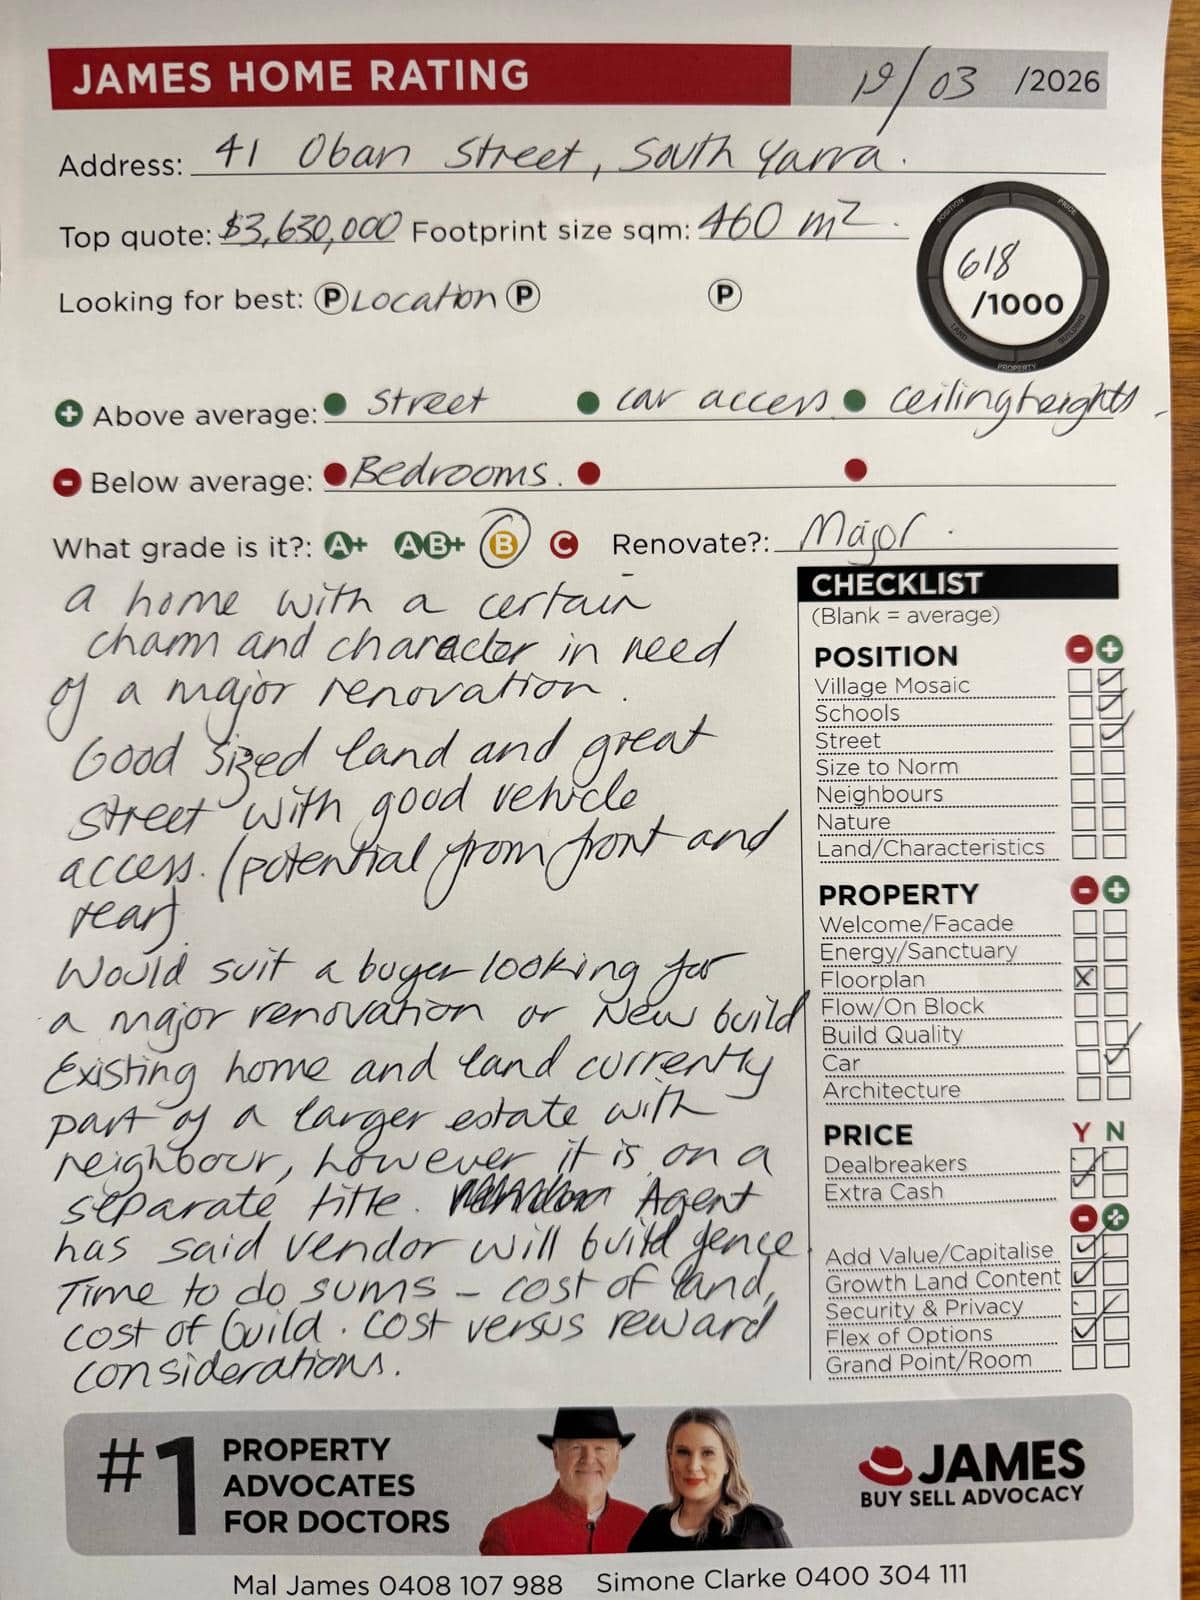 JAMES HOME RATING 19/03 /2026
Address: 41 Oban Street, South Yarra.
Top quote: $3,630,000 Footprint size sqm: 460 m2.
618
/1000
POSITION PRICE BUILDING PROPERTY LAND
Looking for best: P Location P P
+ Above average: Street car access ceiling heights
- Below average: Bedrooms.
What grade is it?: A+ AB+ B C Renovate?: Major.
a home with a certain
charm and character in need
of a major renovation.
Good sized land and great
street with good vehicle
access. (potential from front and
rear)
Would suit a buyer looking for
a major renovation or New build
Existing home and land currently
part of a larger estate with
neighbour, however it is on a
separate title. Agent
has said vendor will build fence.
Time to do sums - cost of land,
cost of build. Cost versus reward
considerations.
CHECKLIST
(Blank = average)
POSITION - +
Village Mosaic
Schools
Street
Size to Norm
Neighbours
Nature
Land/Characteristics
PROPERTY - +
Welcome/Facade
Energy/Sanctuary
Floorplan
Flow/On Block
Build Quality
Car
Architecture
PRICE Y N
Dealbreakers
Extra Cash
- +
Add Value/Capitalise
Growth Land Content
Security & Privacy
Flex of Options
Grand Point/Room
#1 PROPERTY
ADVOCATES
FOR DOCTORS
JAMES
BUY SELL ADVOCACY
Mal James 0408 107 988 Simone Clarke 0400 304 111